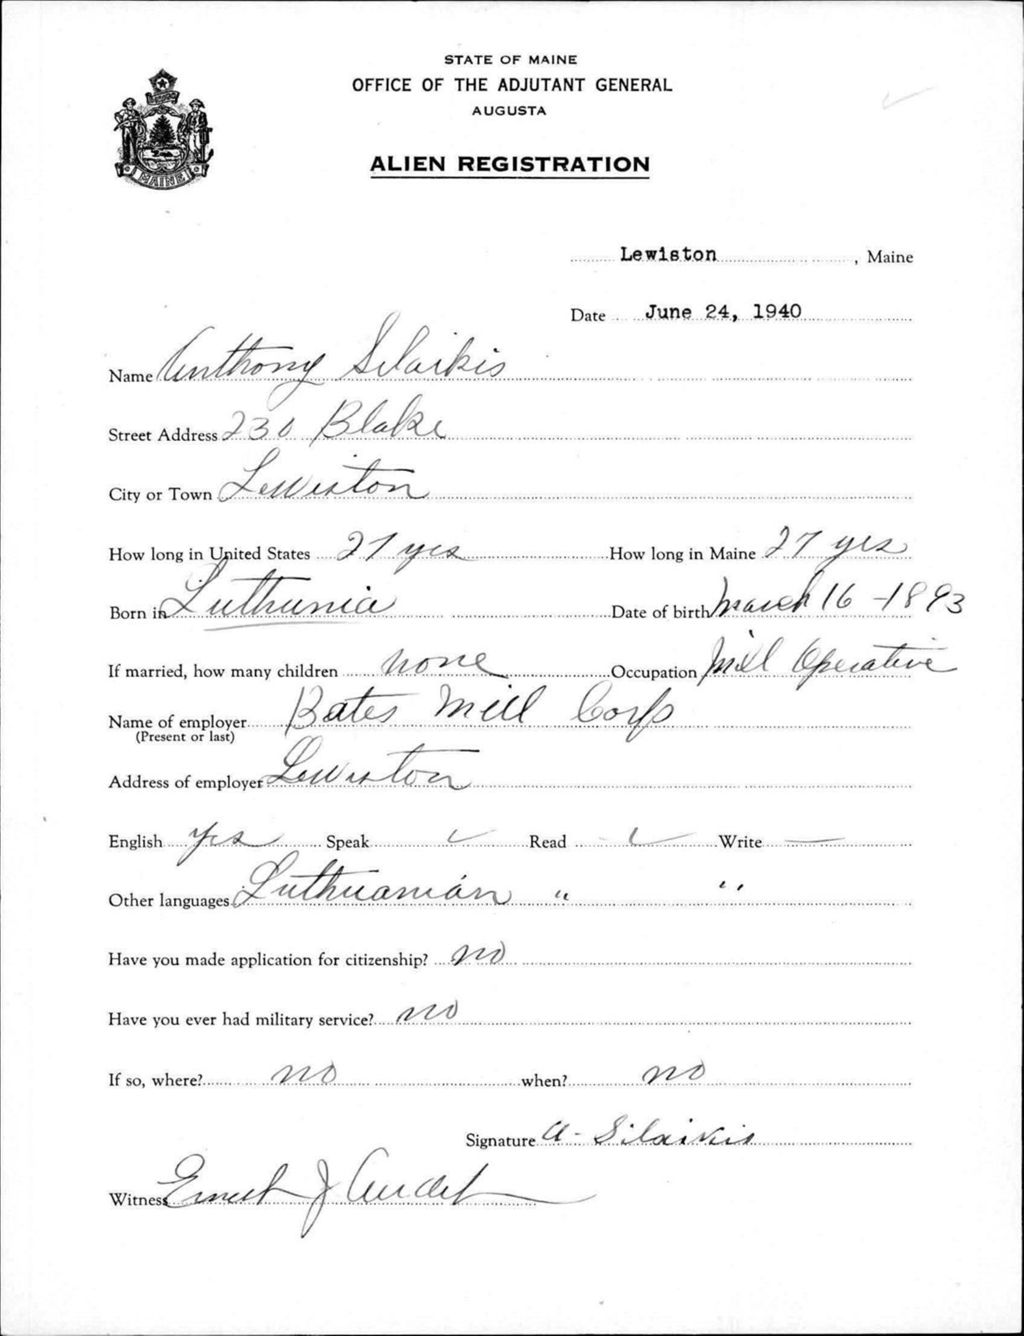 STATE OF MAINE
OFFICE OF THE ADJUTANT GENERAL
AUGUSTA
ALIEN REGISTRATION
MAINE
Lewiston, Maine
Date June 24, 1940
Name Anthony Silaikis
Street Address 230 Blake
City or Town Lewiston
How long in United States 27 yrs How long in Maine 27 yrs
Born in Luthunia Date of birth March 16 - 1893
If married, how many children none Occupation Mill Operative
Name of employer Bates Mill Corp
(Present or last)
Address of employer Lewiston
English yes Speak ✓ Read - ✓ Write —
Other languages Luthuanian " "
Have you made application for citizenship? no
Have you ever had military service? no
If so, where? no when? no
Signature A - Silaikis
Witness Ernest J Audet